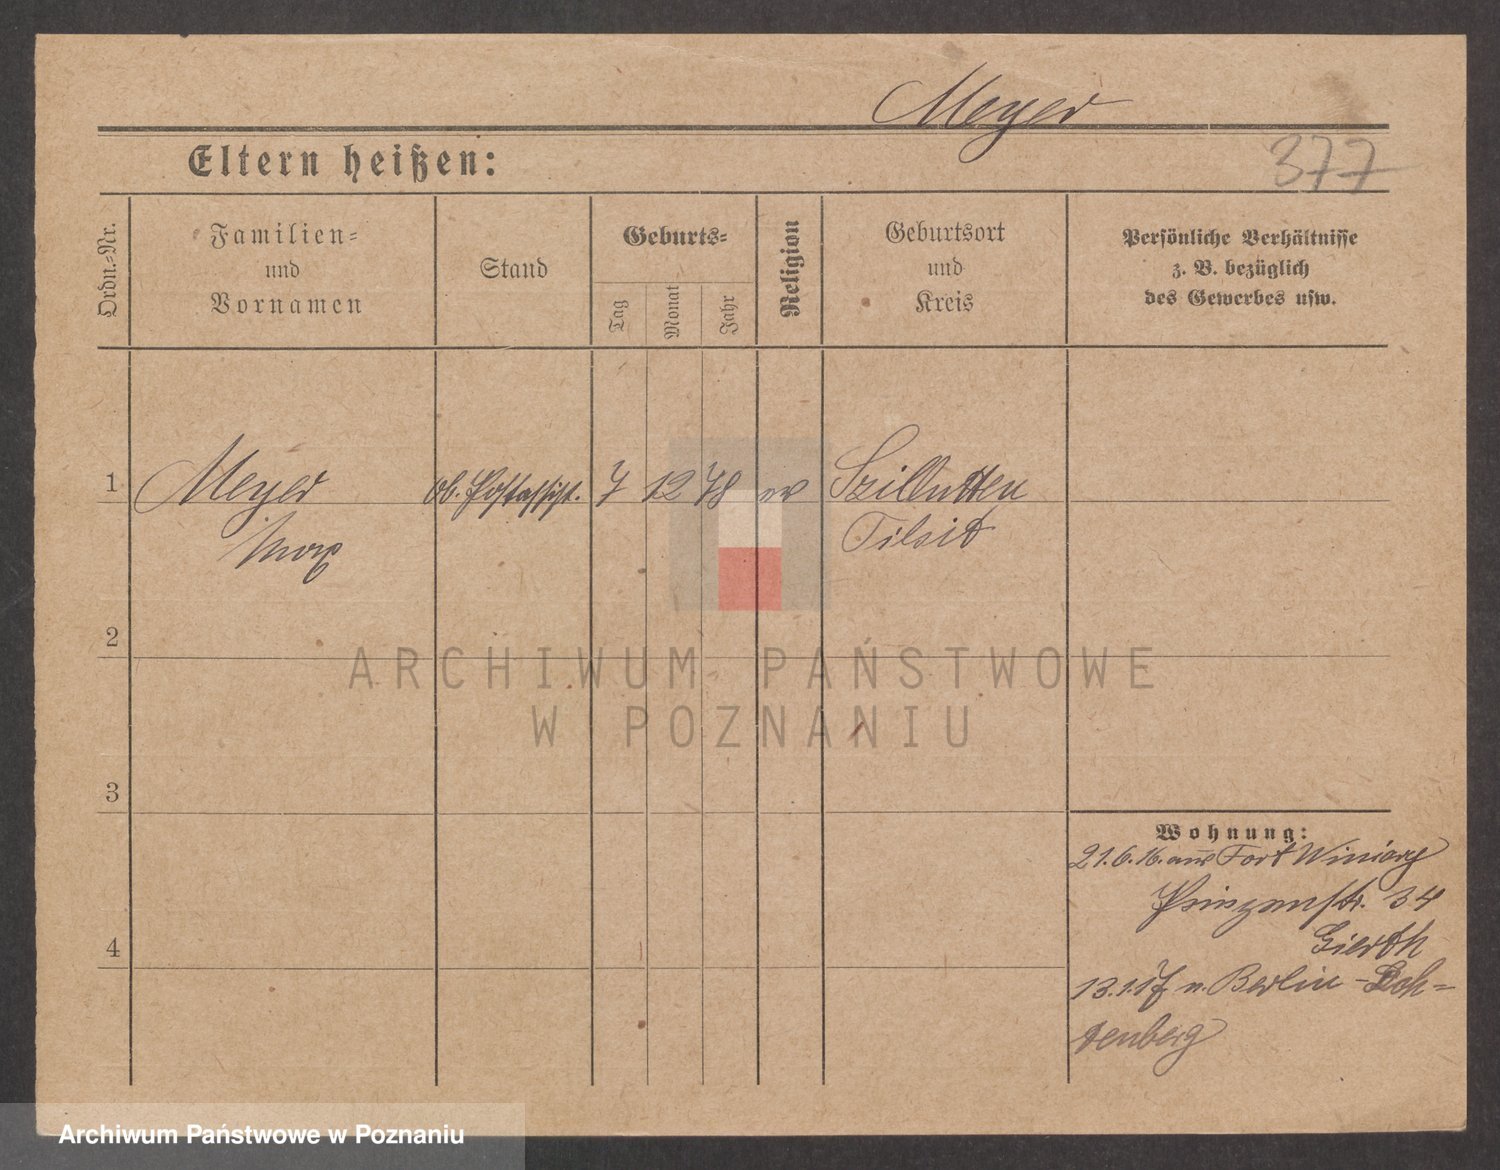 Meyer
377
Eltern heißen:
Ordn.-Nr.
Familien-
und
Vornamen
Stand
Geburts-
Tag
Monat
Jahr
Religion
Geburtsort
und
Kreis
Persönliche Verhältnisse
z. B. bezüglich
des Gewerbes usw.
1 Meyer ob. Postassist. 7 12 78 ev Szillutten
Max Tilsit
2
3
4
Wohnung:
21.6.16. aus Fort Winiary
Prinzenstr. 34
Gierth
13.1.17. n. Berlin-Lich-
tenberg
ARCHIWUM PAŃSTWOWE
W POZNANIU
Archiwum Państwowe w Poznaniu